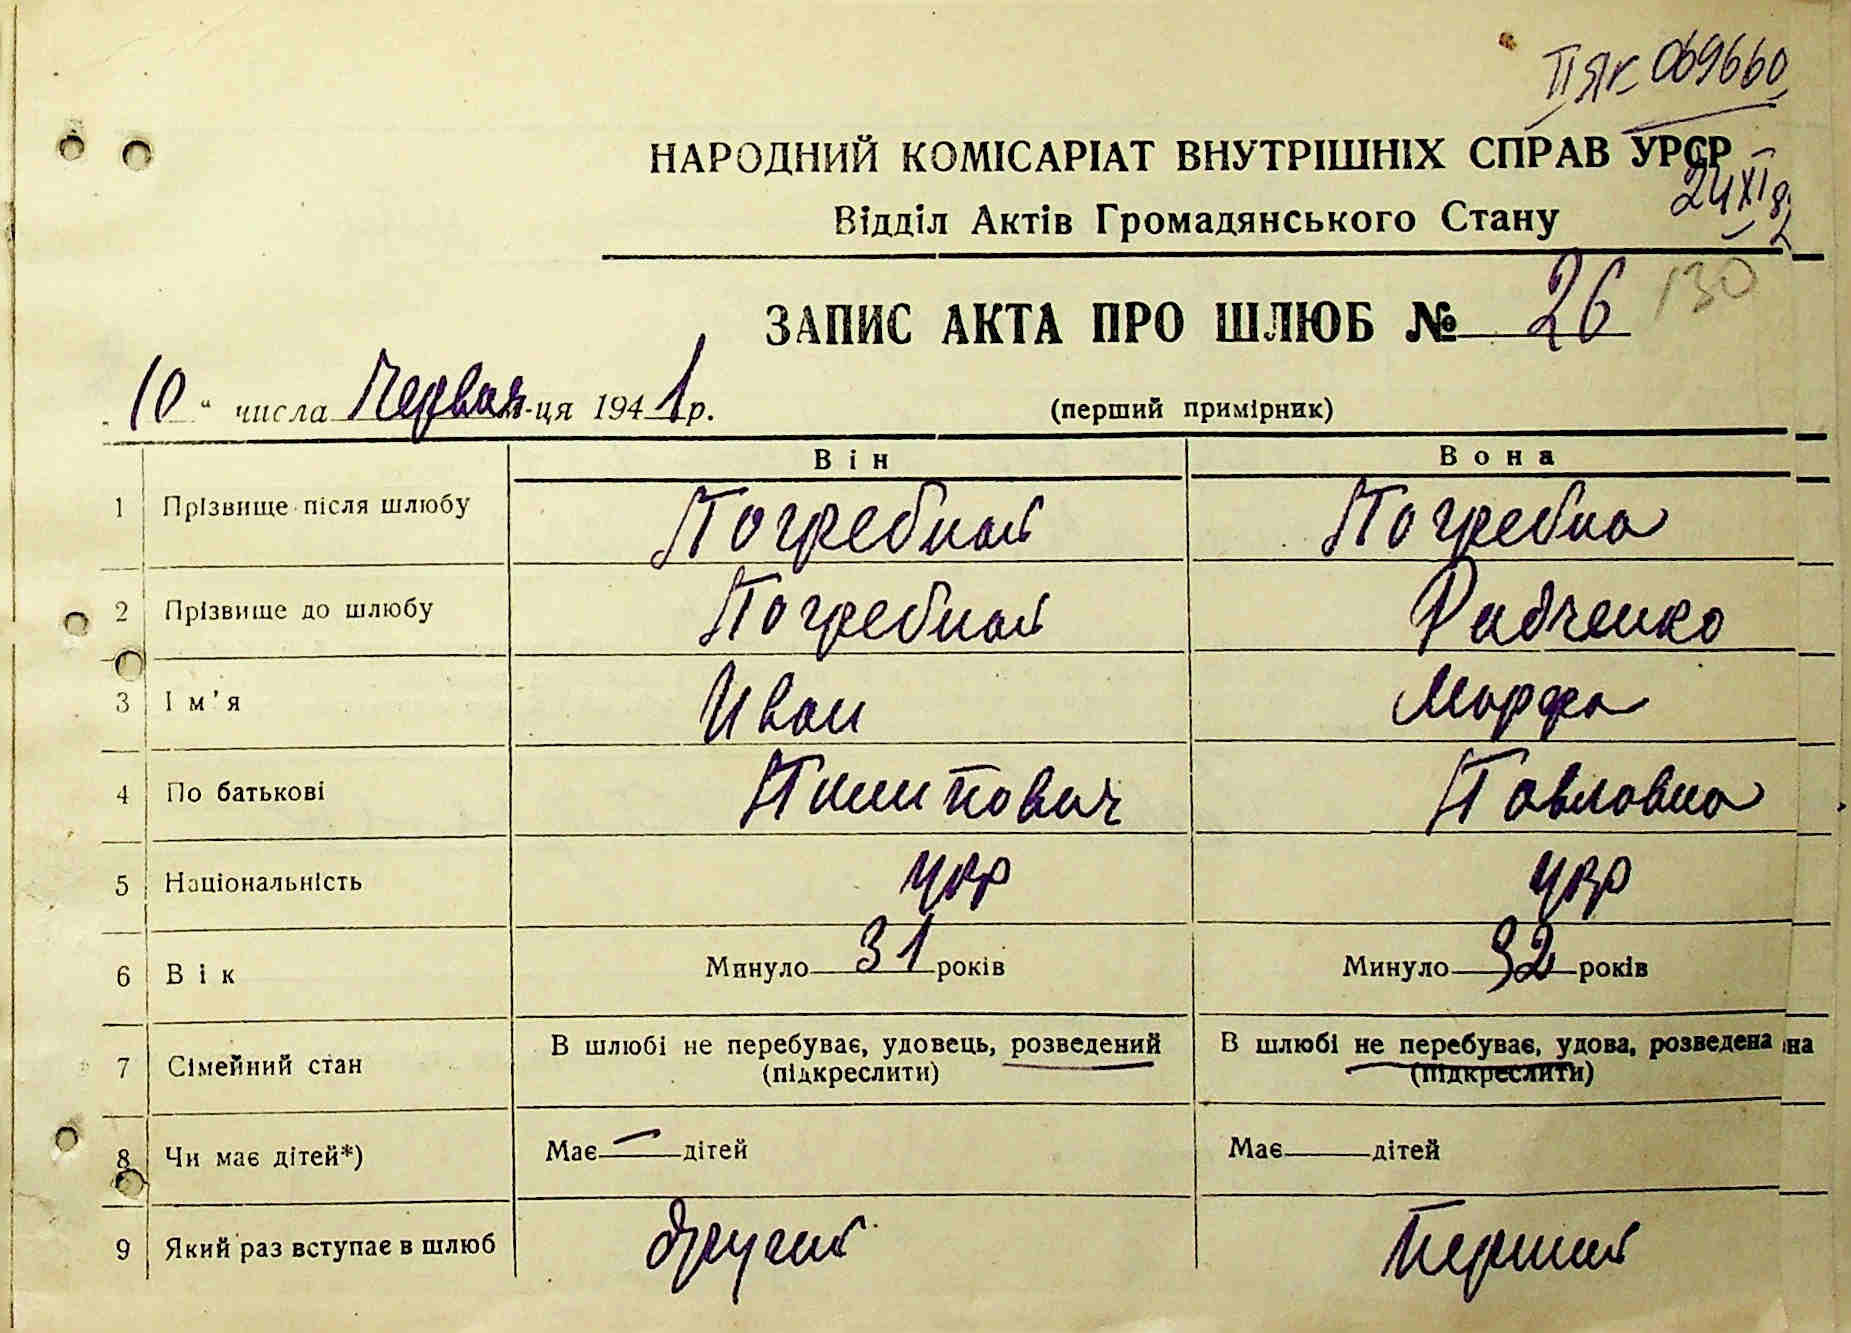 ІІ ЯК 069660
НАРОДНИЙ КОМІСАРІАТ ВНУТРІШНІХ СПРАВ УРСР
24 XI 82
Відділ Актів Громадянського Стану
ЗАПИС АКТА ПРО ШЛЮБ № 26 130
„10“ числа Червня м-ця 1941 р. (перший примірник)
Він Вона
1 Прізвище після шлюбу Погребной Погребна
2 Прізвище до шлюбу Погребной Радченко
3 Ім’я Иван Марфа
4 По батькові Пилипович Павловна
5 Національність укр укр
6 Вік Минуло 31 років Минуло 32 років
7 Сімейний стан В шлюбі не перебуває, удовець, розведений В шлюбі не перебуває, удова, розведена на
(підкреслити) (підкреслити)
8 Чи має дітей*) Має — дітей Має дітей
9 Який раз вступає в шлюб другий Перший